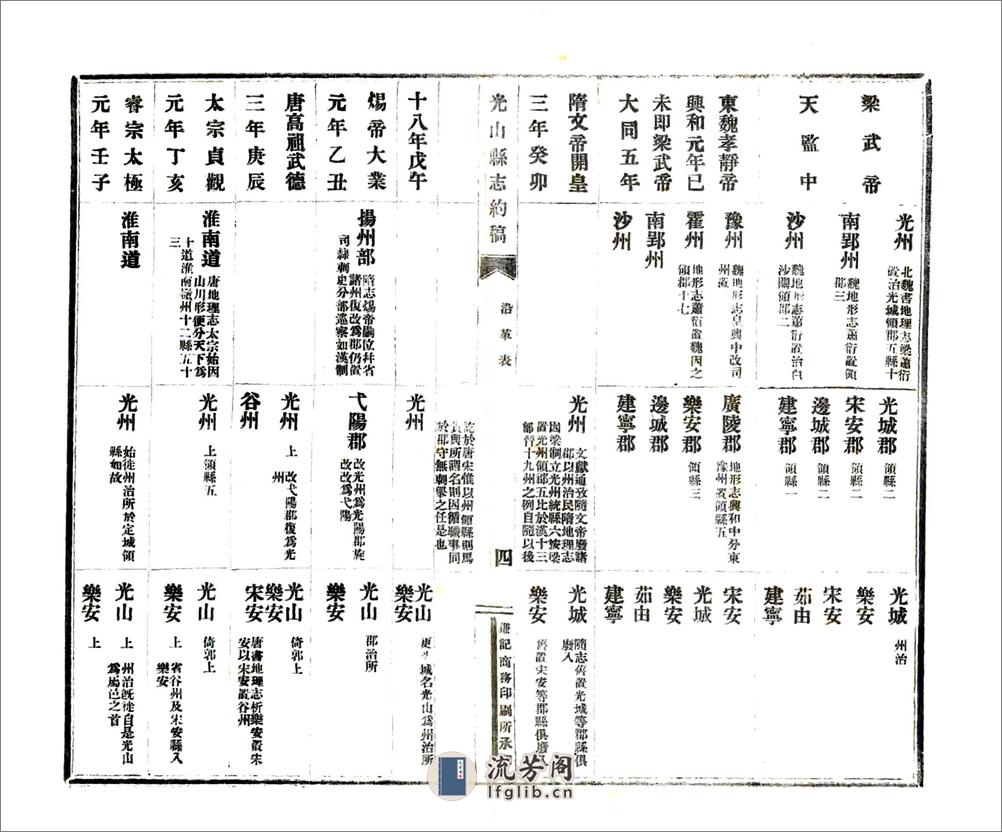 梁武帝
天監中
光州
北魏書地理志梁蕭衍
置治光城領郡五縣十
南郢州
魏地形志蕭衍置領
郡三
沙州
魏地形志蕭衍置治白
沙關領郡二
光城郡
領縣二
宋安郡
領縣二
邊城郡
領縣二
建寧郡
領縣一
光城
州治
樂安
宋安
茹由
建寧
東魏孝靜帝
興和元年已
未即梁武帝
大同五年
豫州
魏地形志皇興中改司
州置
霍州
地形志蕭衍置魏因之
領郡十七
南郢州
沙州
廣陵郡
地形志興和中分東
豫州置領縣五
樂安郡
領縣三
邊城郡
建寧郡
宋安
光城
樂安
茹由
建寧
隋文帝開皇
三年癸卯
光州
文獻通攷隨文帝廢諸
郡以州治民隋地理志
因梁制立光州統縣六按梁
置光州領郡五比於漢十三
部晉十九州之例自隨以後
光城
隨志舊置光城等郡縣俱
廢入
樂安
舊置宋安等郡縣俱廢入
光山縣志約稿
沿革表
四
謙記商務印刷所承
迄於唐宋僅以州領縣則馬
貴與所謂名則因循職事同
於郡守無刺舉之任是也
十八年戊午
光州
光山
更光城名光山爲州治所
樂安
煬帝大業
元年乙丑
揚州部
隋志煬帝嗣位幷省
諸州復改爲郡仍置
司隸刺史分部巡察如漢制
弋陽郡
改光州爲光陽郡旋
改爲弋陽
光山
郡治所
樂安
唐高祖武德
三年庚辰
光州
上 改弋陽郡復爲光
州
谷州
光山
倚郭上
樂安
宋安
唐書地理志析樂安置宋
安以宋安置谷州
太宗貞觀
元年丁亥
淮南道
唐地理志太宗始因
山川形便分天下爲
十道淮南領州十二縣五十
三
光州
上領縣五
光山
倚郭上
樂安
上 省谷州及宋安縣入
樂安
睿宗太極
元年壬子
淮南道
光州
始徙州治所於定城領
縣如故
光山
上 州治旣徙自是光山
爲屬邑之首
樂安
上
流芳阁
lfglib.cn